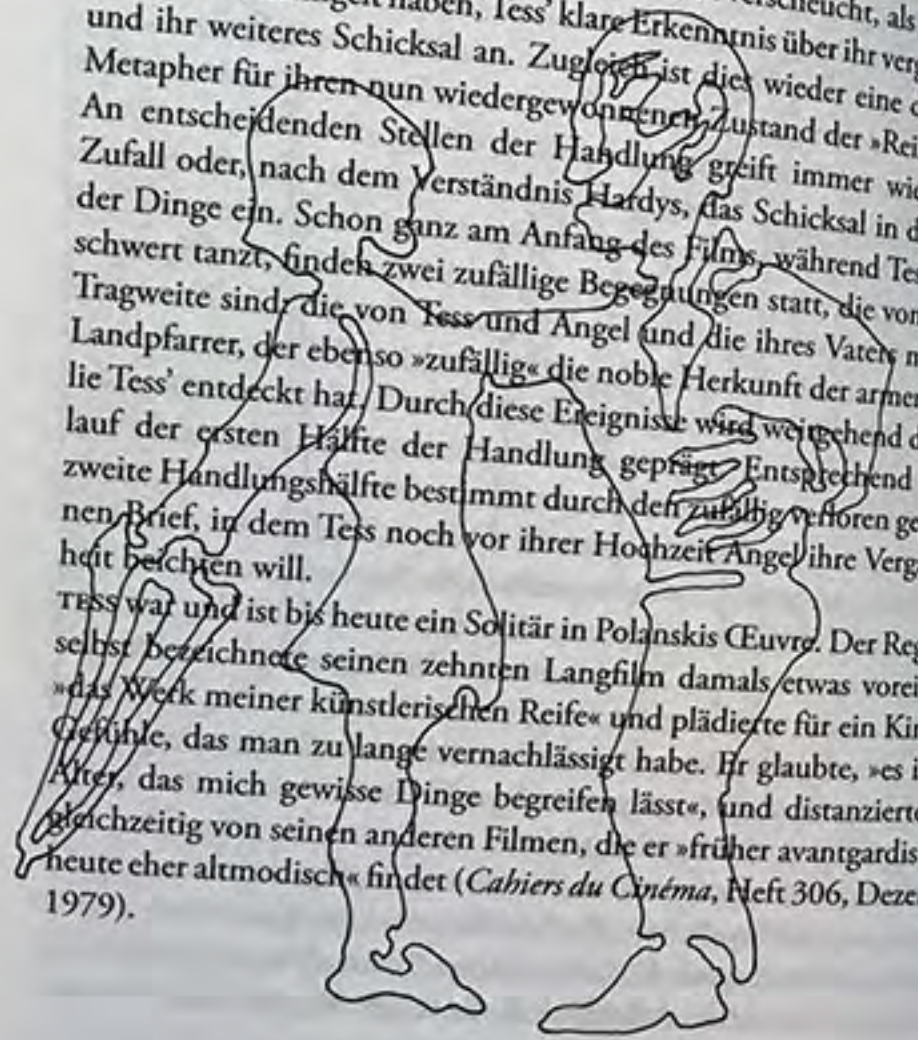 haben, Tess' klare Erkenntnis über ihr ver
und ihr weiteres Schicksal an. Zugleich ist dies wieder eine
Metapher für ihren nun wiedergewonnenen Zustand der »Rei
An entscheidenden Stellen der Handlung greift immer wi
Zufall oder, nach dem Verständnis Hardys, das Schicksal in d
der Dinge ein. Schon ganz am Anfang des Films, während Te
schwert tanzt, finden zwei zufällige Begegnungen statt, die vor
Tragweite sind: die von Tess und Angel und die ihres Vaters m
Landpfarrer, der ebenso »zufällig« die noble Herkunft der armen
lie Tess' entdeckt hat. Durch diese Ereignisse wird weitgehend d
lauf der ersten Hälfte der Handlung geprägt. Entsprechend
zweite Handlungshälfte bestimmt durch den zufällig verloren ge
nen Brief, in dem Tess noch vor ihrer Hochzeit Angel ihre Verg
heit beichten will.
TESS war und ist bis heute ein Solitär in Polanskis Œuvre. Der Reg
selbst bezeichnete seinen zehnten Langfilm damals etwas vorei
»das Werk meiner künstlerischen Reife« und plädierte für ein Ki
Gefühle, das man zu lange vernachlässigt habe. Er glaubte, »es i
Alter, das mich gewisse Dinge begreifen lässt«, und distanzierte
gleichzeitig von seinen anderen Filmen, die er »früher avantgardis
heute eher altmodisch« findet (Cahiers du Cinéma, Heft 306, Deze
1979).